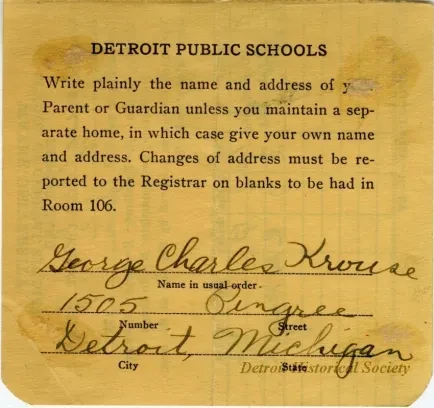 DETROIT PUBLIC SCHOOLS
Write plainly the name and address of
Parent or Guardian unless you maintain a sep-
arate home, in which case give your own name
and address. Changes of address must be re-
ported to the Registrar on blanks to be had in
Room 106.
George Charles Krouse
Name in usual order
1505 Pingree
Number Street
Detroit, Michigan
City State
Detroit Historical Society